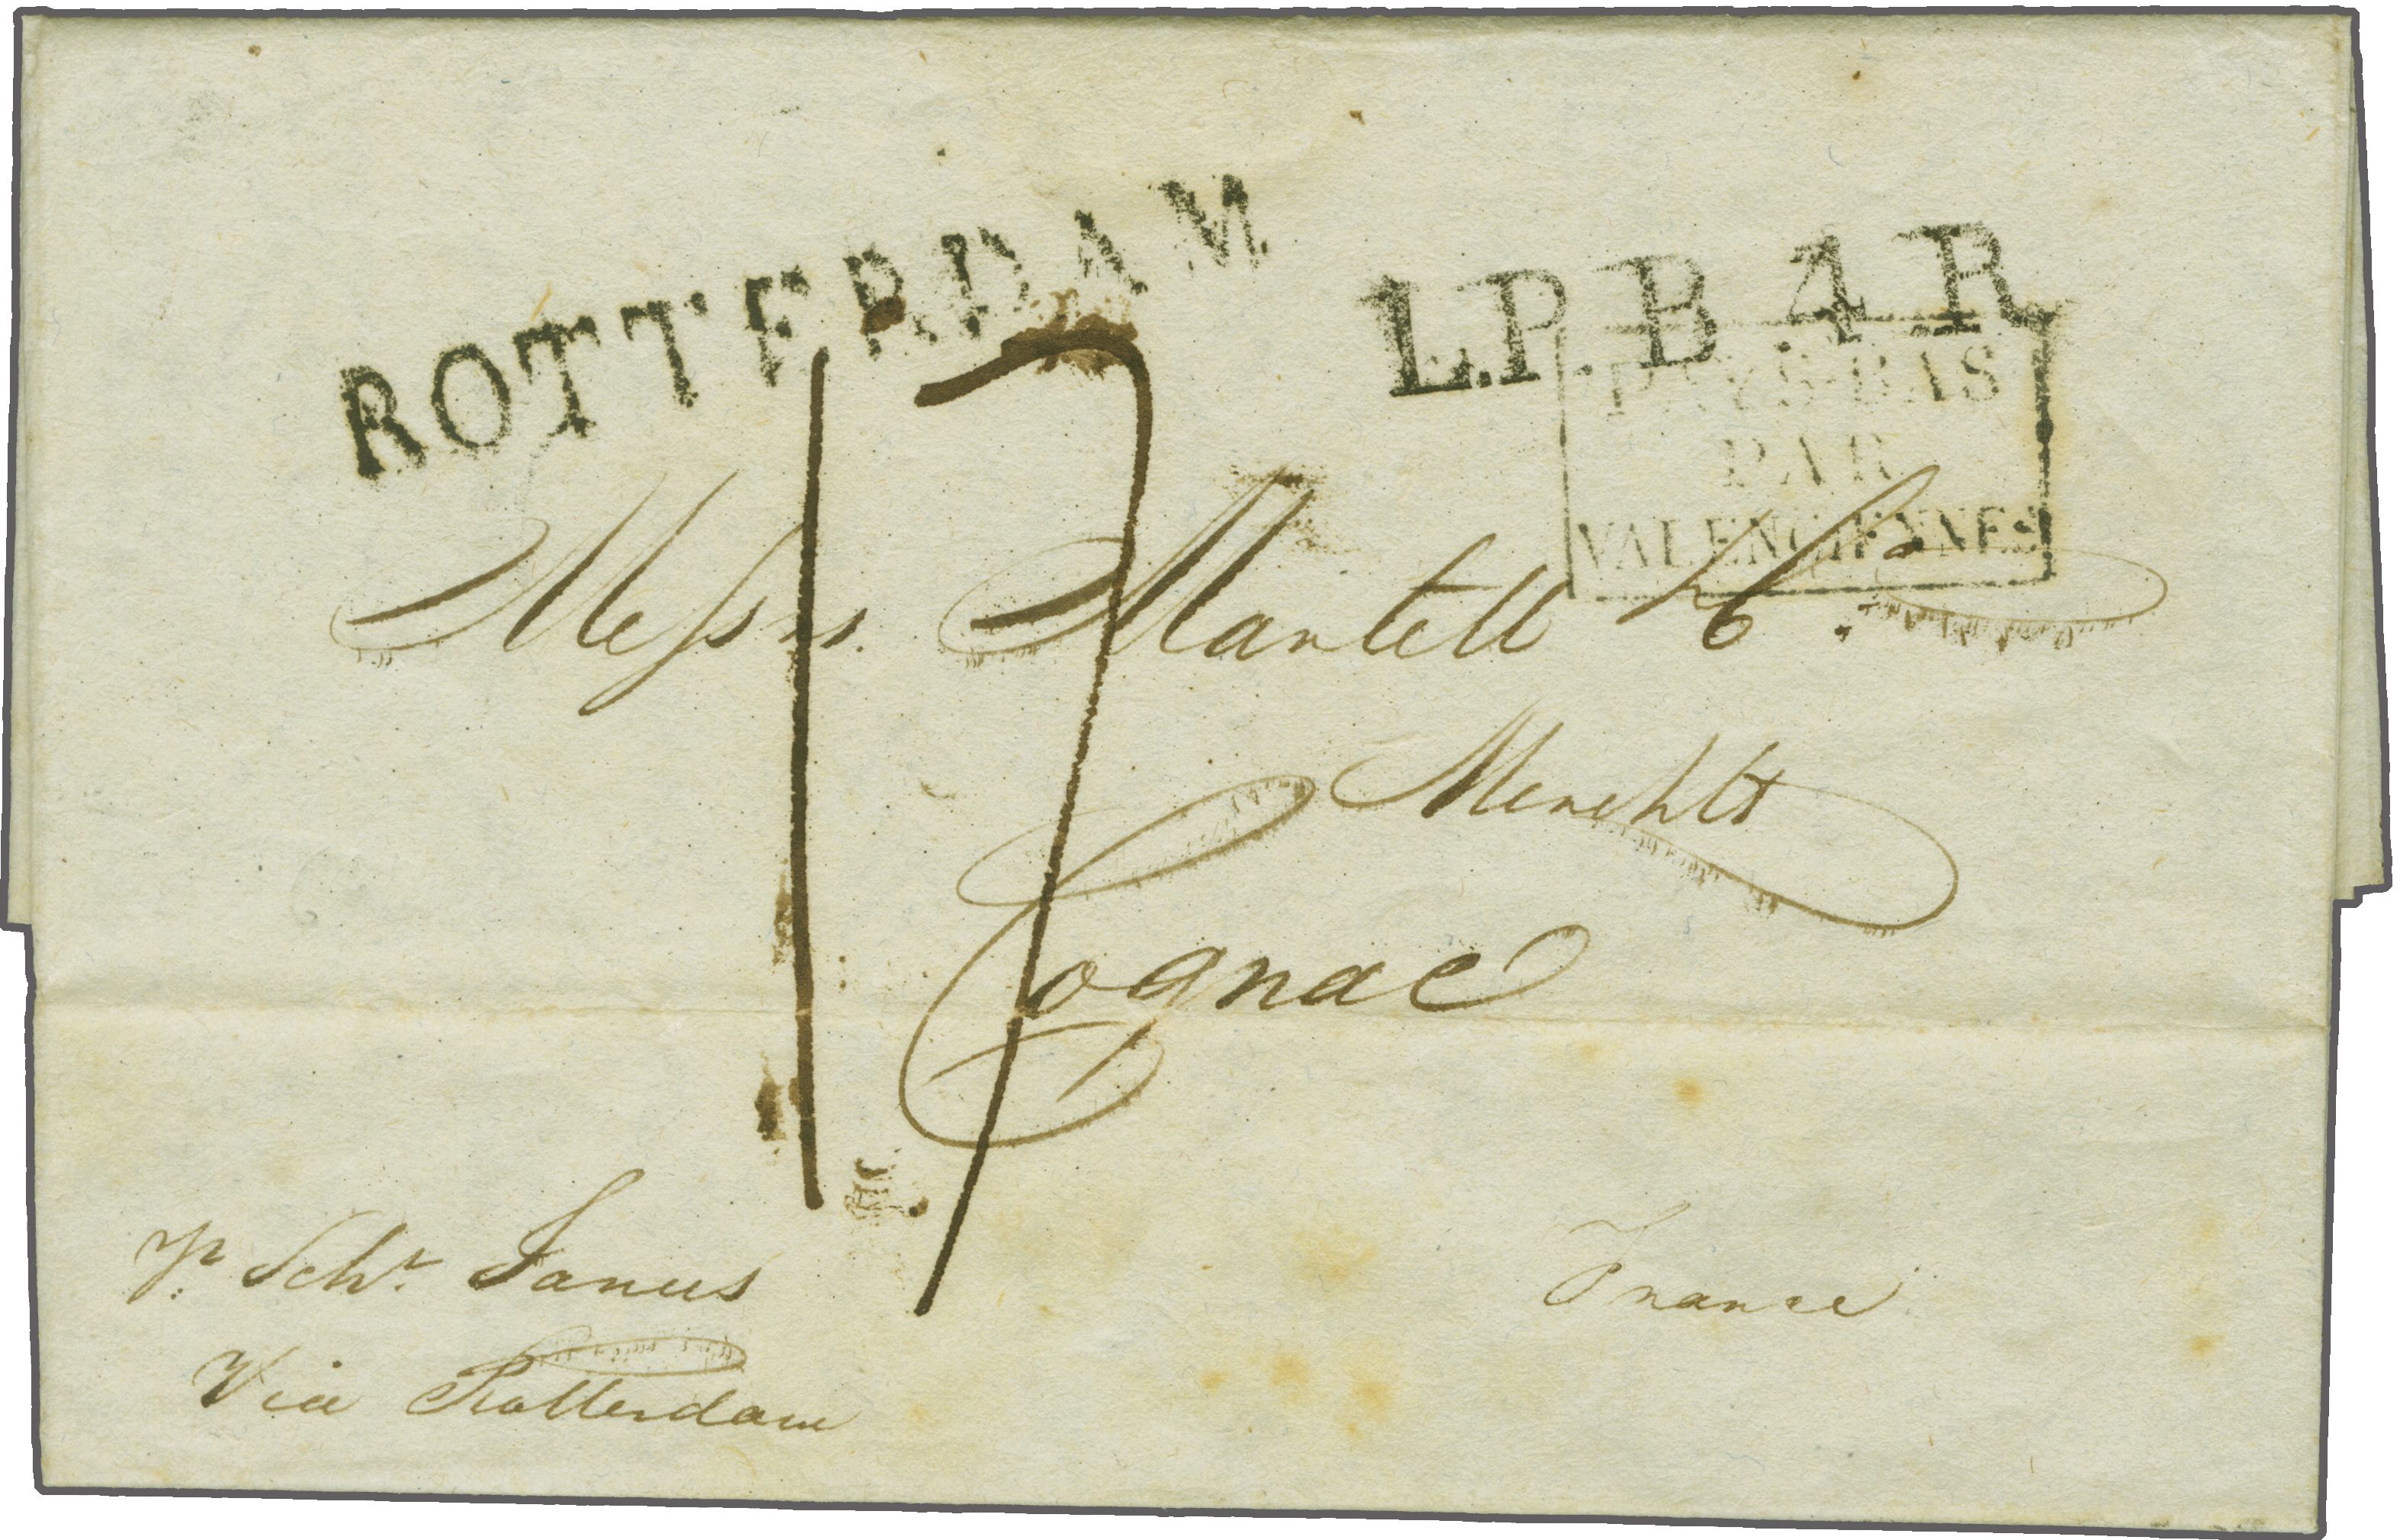 ROTTERDAM
L.P.B.4.R.
PAYS-BAS
PAR
VALENCIENNES
17
Messrs. Martell & Co.
Merchts
Cognac
pr. Schr. Janus
Via Rotterdam
France